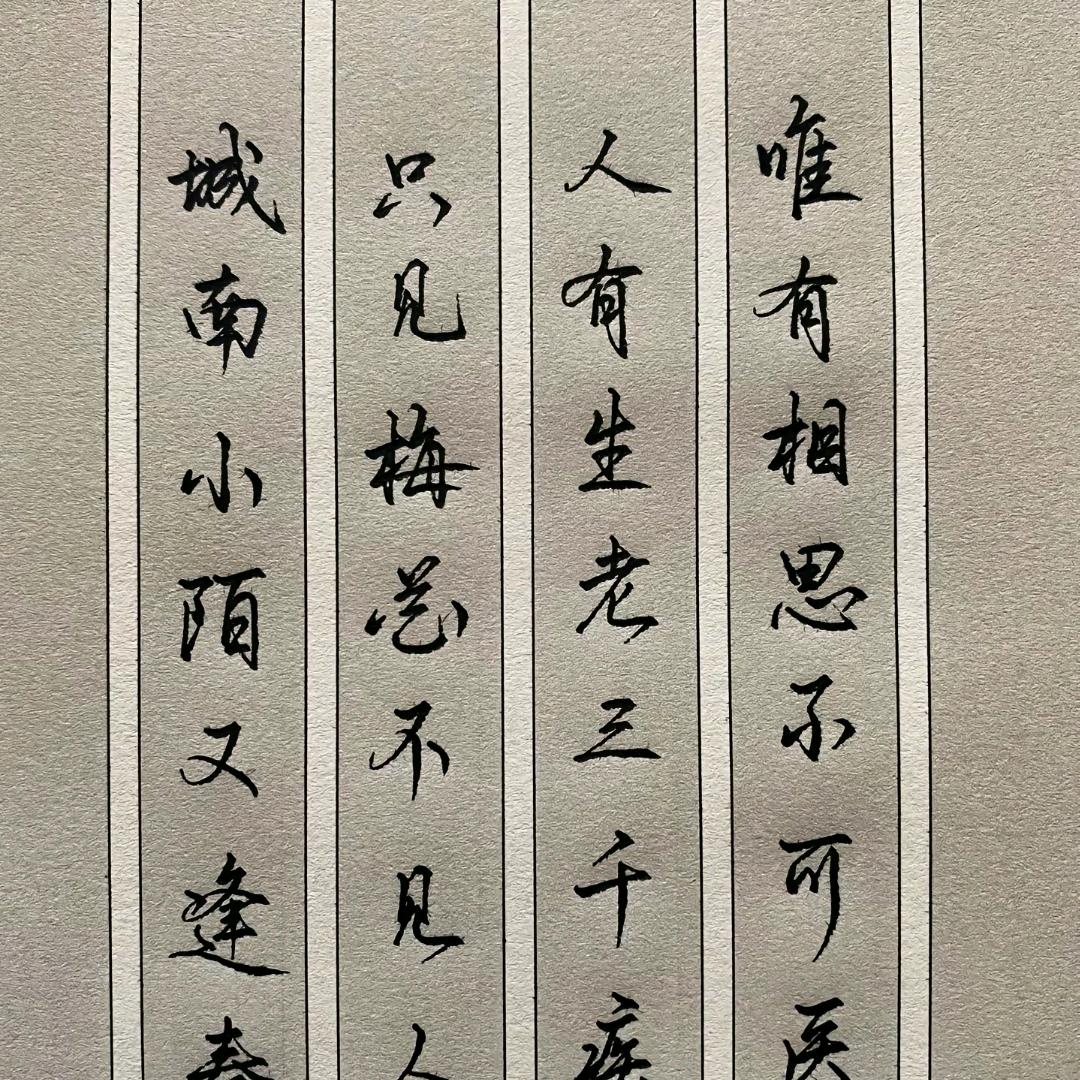 城南小陌又逢春
只见梅花不见人
人有生老三千疾
唯有相思不可医